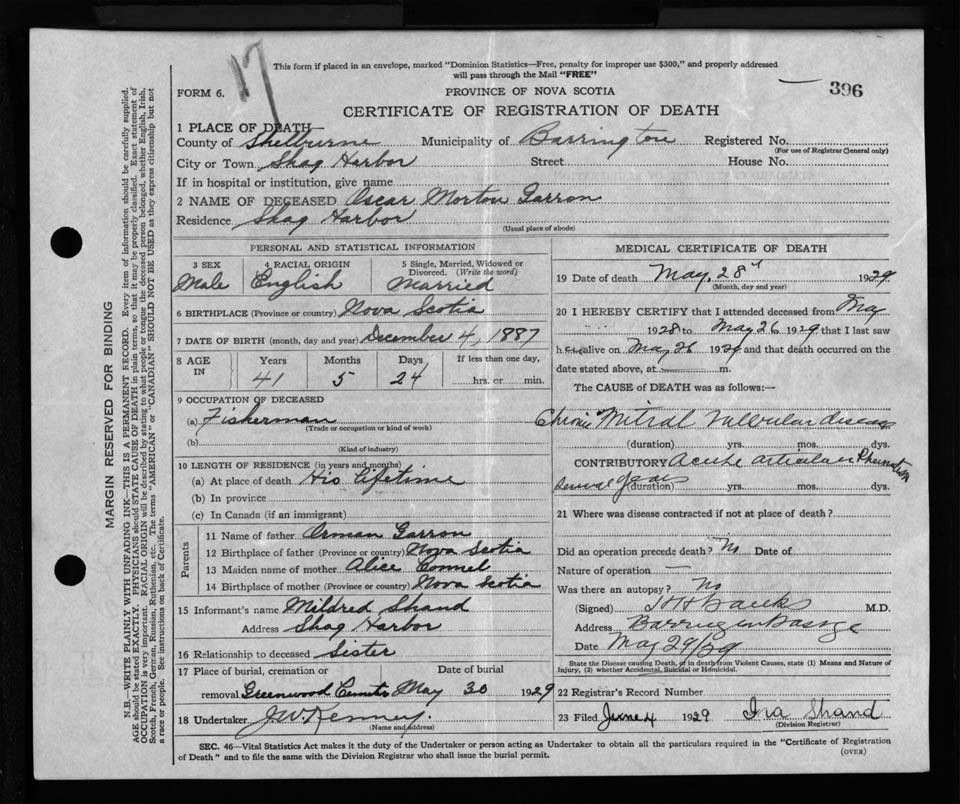 17
This form if placed in an envelope, marked "Dominion Statistics—Free, penalty for improper use $300," and properly addressed
will pass through the Mail "FREE"
FORM 6.
PROVINCE OF NOVA SCOTIA
396
CERTIFICATE OF REGISTRATION OF DEATH
1 PLACE OF DEATH
County of Shelburne Municipality of Barrington Registered No.
(For use of Registrar General only)
City or Town Shag Harbor Street House No.
If in hospital or institution, give name
2 NAME OF DECEASED Oscar Morton Garron
Residence Shag Harbor
(Usual place of abode)
PERSONAL AND STATISTICAL INFORMATION
3 SEX 4 RACIAL ORIGIN 5 Single, Married, Widowed or
Divorced. (Write the word)
Male English Married
6 BIRTHPLACE (Province or country) Nova Scotia
7 DATE OF BIRTH (month, day and year) December 4, 1887
8 AGE IN Years Months Days If less than one day,
41 5 24 hrs. or min.
9 OCCUPATION OF DECEASED
(a) Fisherman
(Trade or occupation or kind of work)
(b)
(Kind of industry)
10 LENGTH OF RESIDENCE (in years and months)
(a) At place of death His Lifetime
(b) In province
(c) In Canada (if an immigrant)
Parents
11 Name of father Orman Garron
12 Birthplace of father (Province or country) Nova Scotia
13 Maiden name of mother Alice Connel
14 Birthplace of mother (Province or country) Nova Scotia
15 Informant's name Mildred Shand
Address Shag Harbor
16 Relationship to deceased Sister
17 Place of burial, cremation or Date of burial
removal Greenwood May 30 1929
18 Undertaker J.W. Kenney.
(Name and address)
MEDICAL CERTIFICATE OF DEATH
19 Date of death May, 28 1929
(Month, day and year)
20 I HEREBY CERTIFY that I attended deceased from May
1928 to May 26 1929 that I last saw
h alive on May 26 1929 and that death occurred on the
date stated above, at m.
The CAUSE of DEATH was as follows:—
Chronic Mitral Valvular disease
(duration) yrs. mos. dys.
CONTRIBUTORY Acute articular Rheumatism
Several years
(duration) yrs. mos. dys.
21 Where was disease contracted if not at place of death?
Did an operation precede death? No Date of
Nature of operation —
Was there an autopsy? No
(Signed) H H Banks M.D.
Address Barrington Passage
Date May 29/29
State the Disease causing Death, or in death from Violent Causes, state (1) Means and Nature of
Injury, (2) whether Accidental, Suicidal or Homicidal.
22 Registrar's Record Number
23 Filed June 4 1929 Ira Shand
(Division Registrar)
SEC. 46—Vital Statistics Act makes it the duty of the Undertaker or person acting as Undertaker to obtain all the particulars required in the "Certificate of Registration
of Death" and to file the same with the Division Registrar who shall issue the burial permit.
(OVER)
MARGIN RESERVED FOR BINDING
N.B.—WRITE PLAINLY WITH UNFADING INK—THIS IS A PERMANENT RECORD. Every item of information should be carefully supplied.
AGE should be stated EXACTLY. PHYSICIANS should STATE CAUSE OF DEATH in plain terms, so that it may be properly classified. Exact statement of
OCCUPATION is very important. RACIAL ORIGIN will be described by stating to what people or tongue the deceased person belonged, whether English, Irish,
Scotch, French, German, Russian, Ruthenian, etc. The terms "AMERICAN" or "CANADIAN" SHOULD NOT BE USED as they express citizenship but not
a race or people. See instructions on back of Certificate.